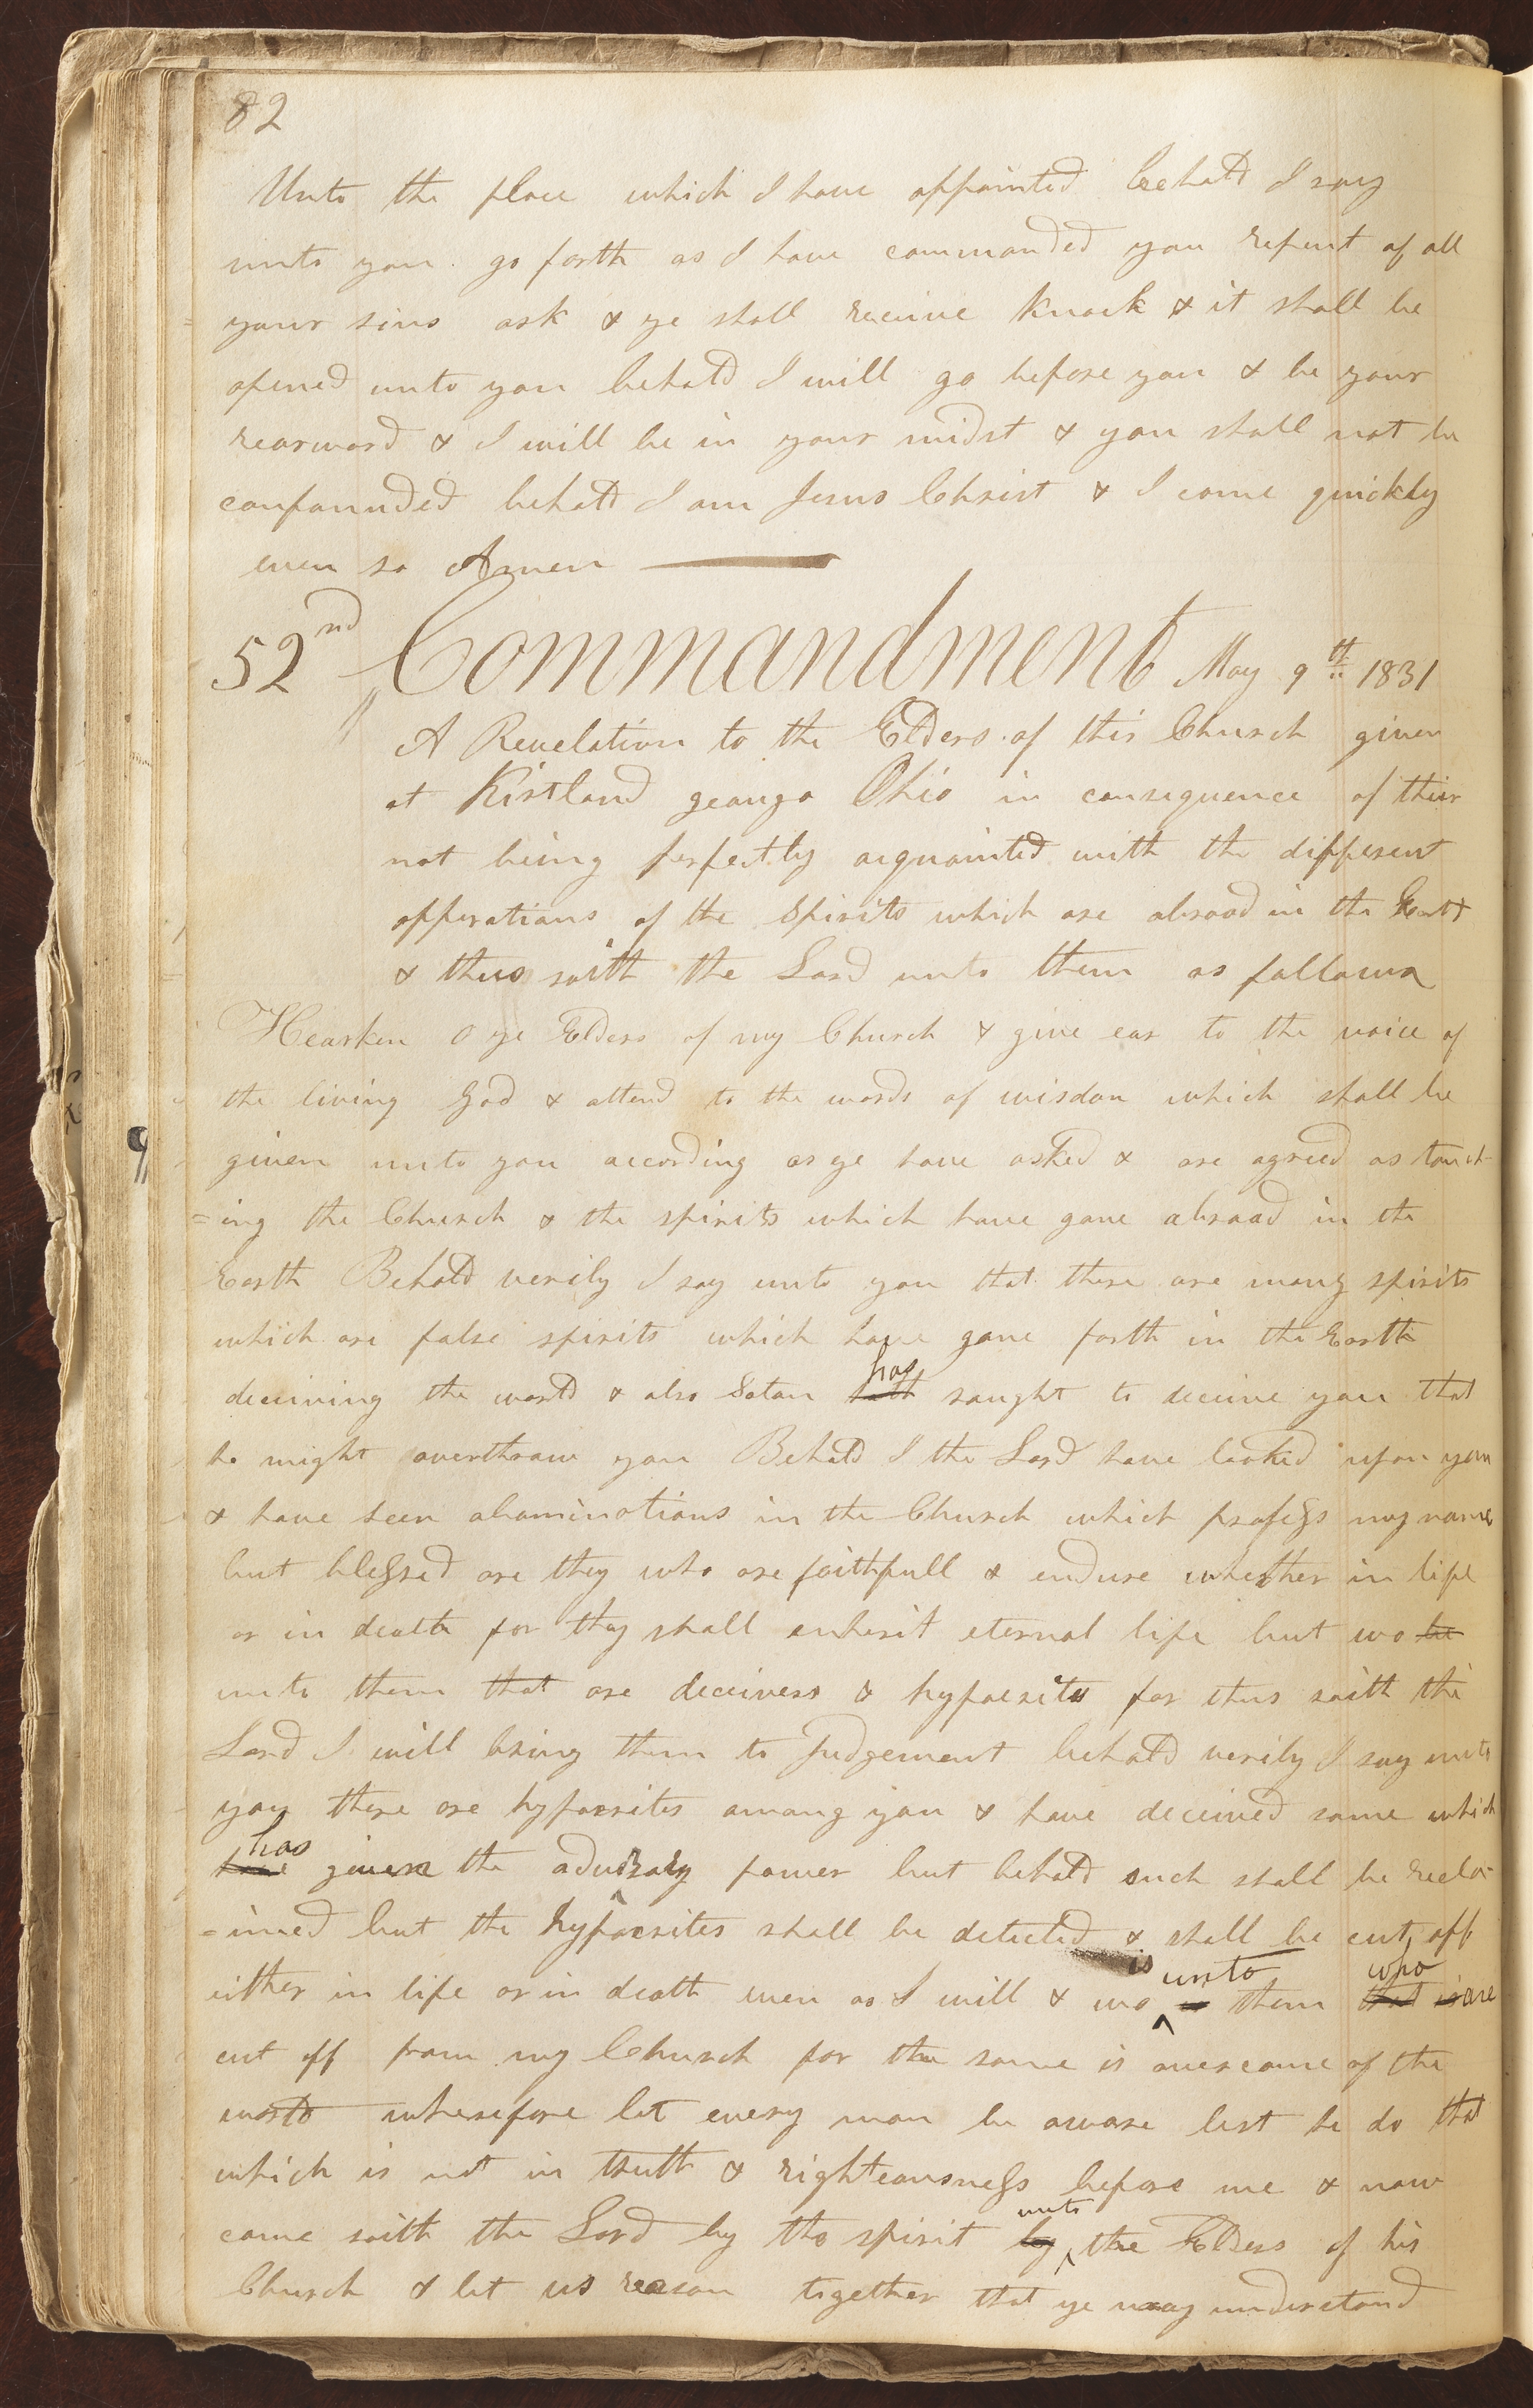 82
Unto the place which I have appointed behold I say
unto you go forth as I have commanded you repent of all
your sins ask & ye shall receive knock & it shall be
opened unto you behold I will go before you & be your
rearward & I will be in your midst & you shall not be
confounded behold I am Jesus Christ & I come quickly
even so Amen
52nd Commandment May 9th 1831
A Revelation to the Elders of this Church given
at Kirtland geauga Ohio in consequence of their
not being perfectly acquainted with the different
opperations of the Spirits which are abroad in the Earth
& thus saith the Lord unto them as follows
Hearken O ye Elders of my Church & give ear to the voice of
the living God & attend to the words of wisdom which shall be
given unto you according as ye have asked & are agreed as touch-
=ing the Church & the spirits which have gone abroad in the
Earth Behold verily I say unto you that there are many spirits
which are false spirits which have gone forth in the Earth
has
deceiving the world & also Satan hath sought to deceive you that
he might overthrow you Behold I the Lord have looked upon you
& have seen abominations in the Church which profess my name
but blessed are they who are faithfull & endure whether in life
or in death for they shall enherit eternal life but wo be
unto them that are deceivers & hypocrites for thus saith the
Lord I will bring them to Judgement behold verily I say unto
you there are hypocrites among you & have deceived some which
has
have given the adversary power but behold such shall be recla-
=imed but the hypocrites shall be detected & shall be cut off
is unto who
either in life or in death even as I will & wo them that is are
cut off from my Church for the same is overcome of the
world wherefore let every man be aware lest he do that
which is not in truth & righteousness before me & now
unto
come saith the Lord by the spirit by the Elders of his
Church & let us reason together that ye may understand